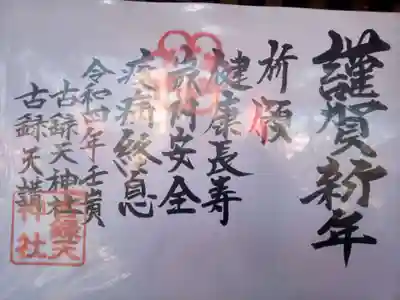 謹賀新年
祈願
健康長寿
旅行安全
疫病終息
令和四年壬寅
古録天神社
古録天講
録天
神社